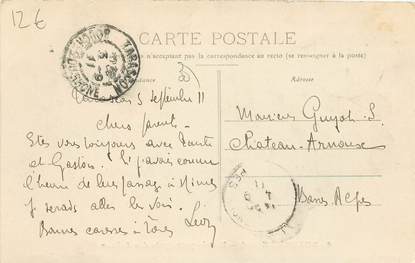 12€
CARTE POSTALE
n'acceptent pas la correspondance au recto (se renseigner à la poste)
TARASCON
3-9
11
Tarascon 3 Septembre 11
Chers parents
Etes vous toujours avec
et Gaston. Si j'avais connu
l'heure de leur passage à Nimes
je serais allé les voir.
Bonnes caresses à tous Léon
Monsieur Guyot S.
Chateau-Arnoux
Basses Alpes